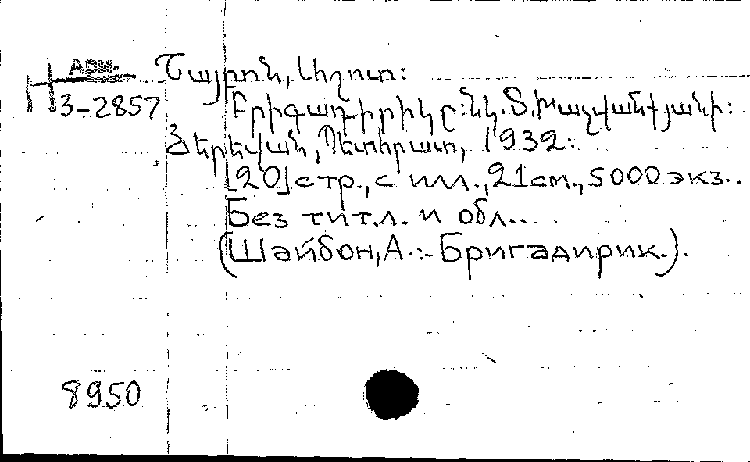 Арм.
3-2857
Շայբոն, Աշոտ:
Բրիգադիրիկը: Նկ. Տ. Խաչվանքյանի:
Յերեվան, Պետհրատ, 1932:
[20] стр., с илл., 21см., 5000 экз..
Без тит.л. и обл..
(Шайбон, А.:- Бригадирик.).
8950